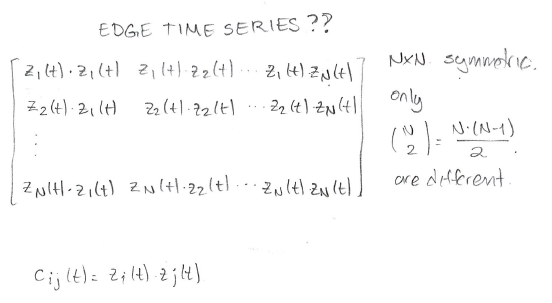 EDGE TIME SERIES ??
z₁(t)·z₁(t) z₁(t)·z₂(t) ... z₁(t) z_N(t)
z₂(t)·z₁(t) z₂(t)·z₂(t) ... z₂(t)·z_N(t)
⋮
z_N(t)·z₁(t) z_N(t)·z₂(t) ... z_N(t) z_N(t)
N×N symmetric,
only
(N 2) = N·(N-1) / 2.
are different.
C_ij(t) = z_i(t)·z_j(t)